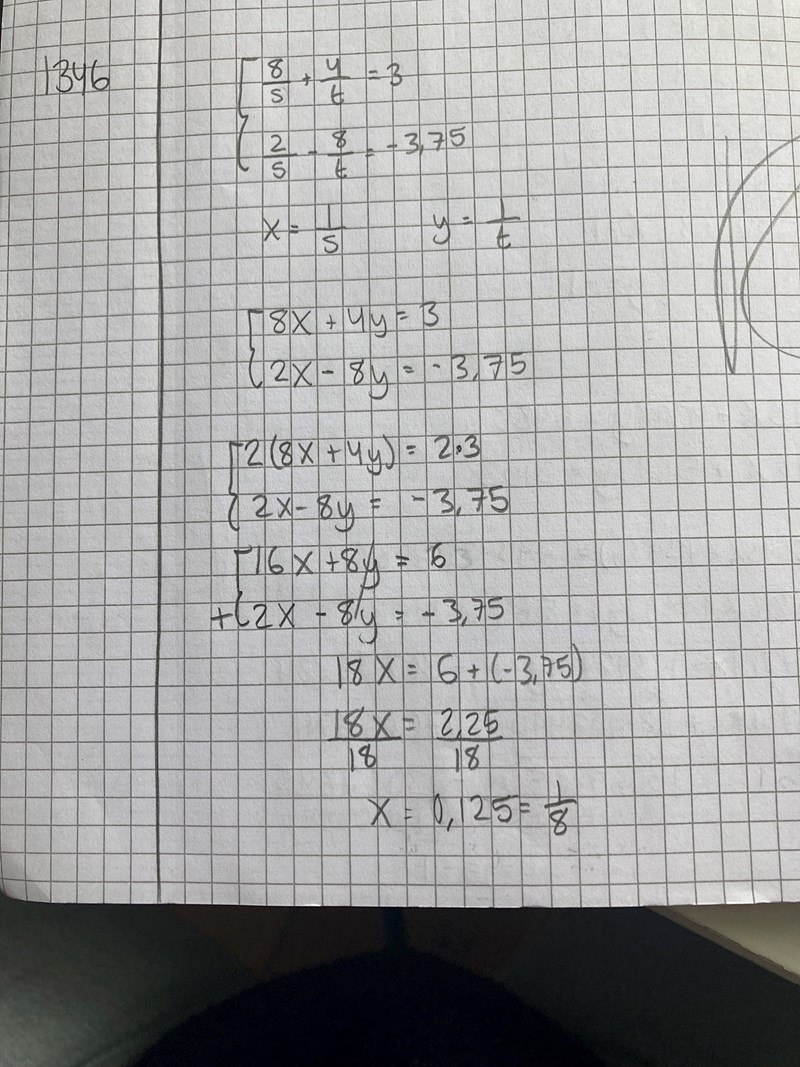 1346
8/s + 4/t = 3
2/s - 8/t = -3,75
x = 1/s y = 1/t
8x + 4y = 3
2x - 8y = -3,75
2(8x + 4y) = 2·3
2x - 8y = -3,75
16x + 8y = 6
+ 2x - 8y = -3,75
18x = 6 + (-3,75)
18x/18 = 2,25/18
x = 0,125 = 1/8